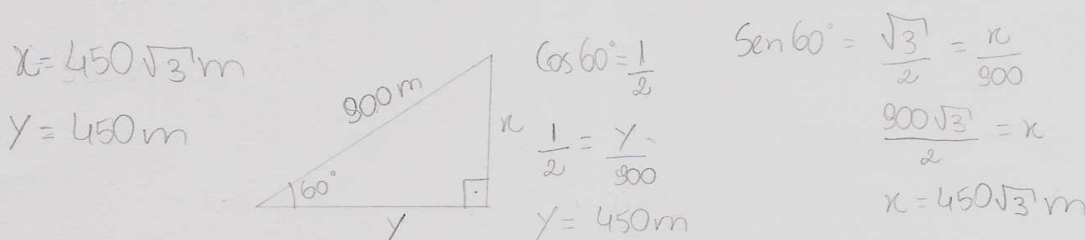 x = 450√3 m
y = 450 m
900 m
60°
x
y
Cos 60° = 1/2
1/2 = y/900
y = 450 m
Sen 60° = √3/2 = x/900
900√3/2 = x
x = 450√3 m